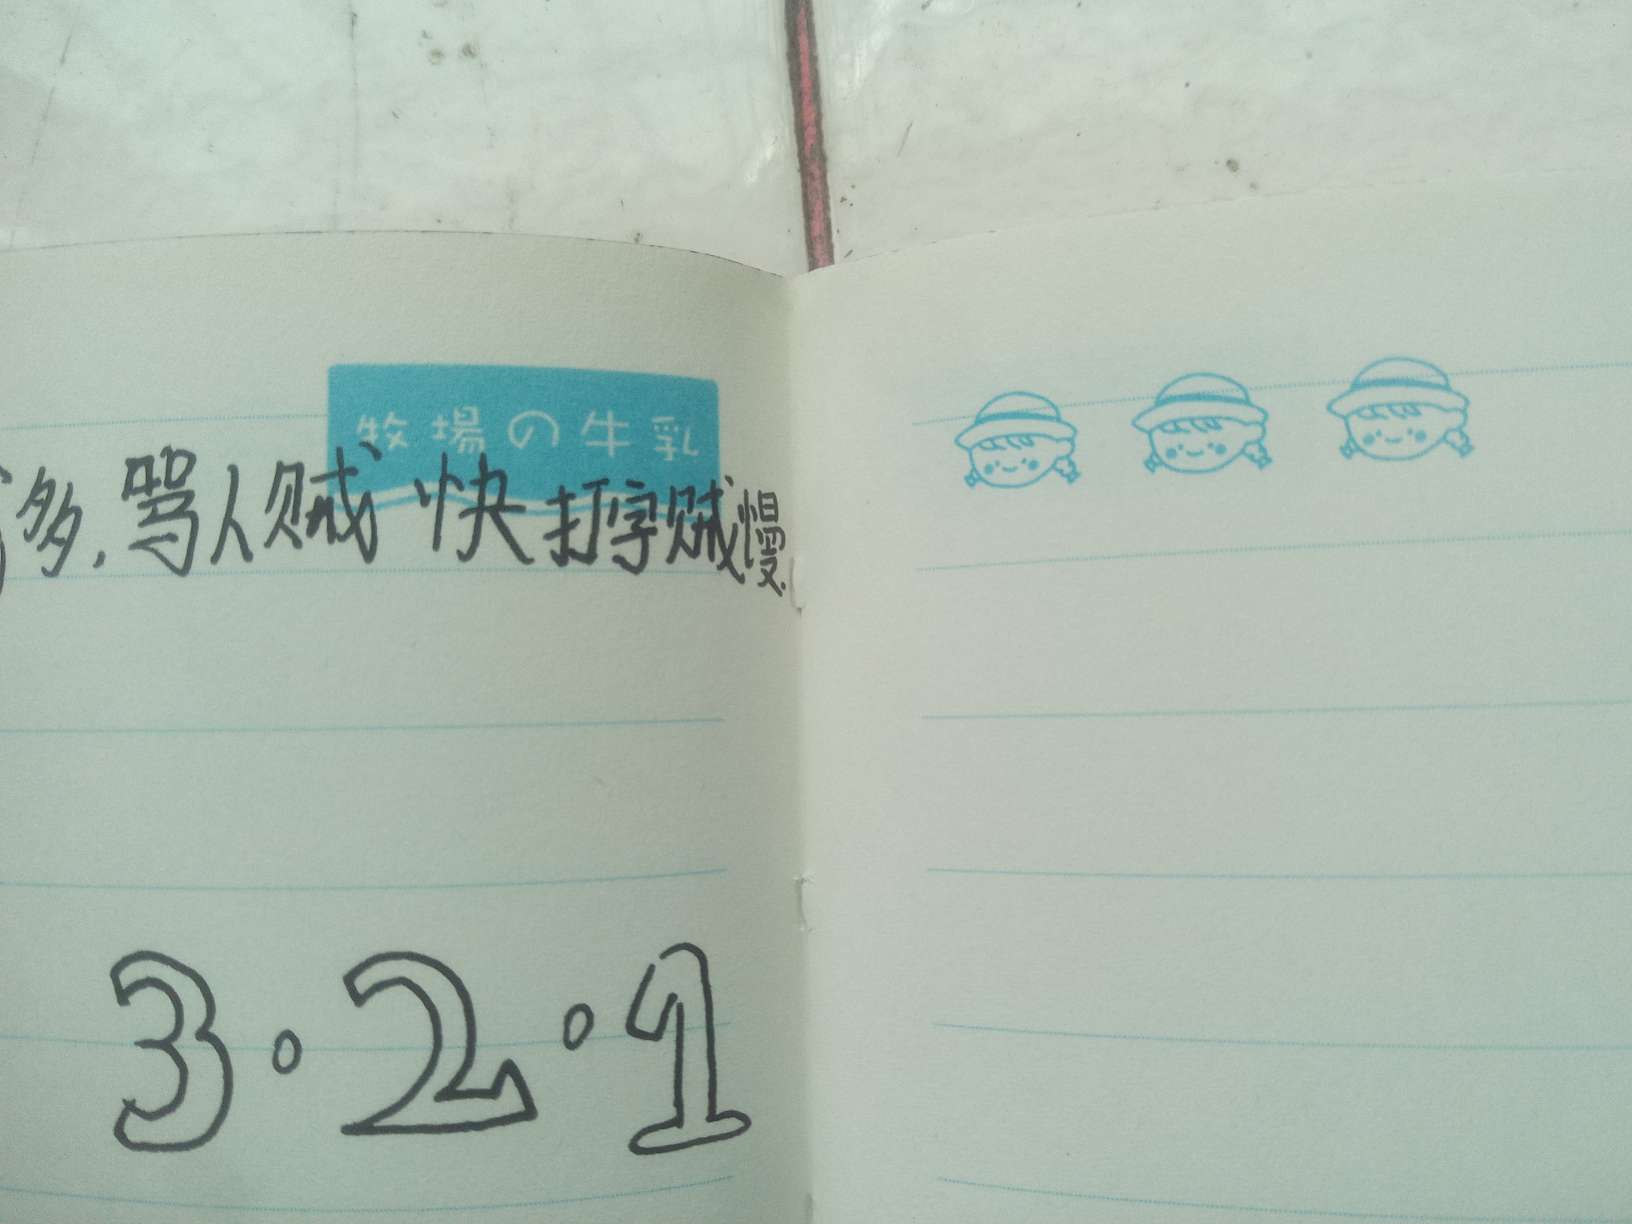 牧場の牛乳
多,骂人贼快打字贼慢
3·2·1